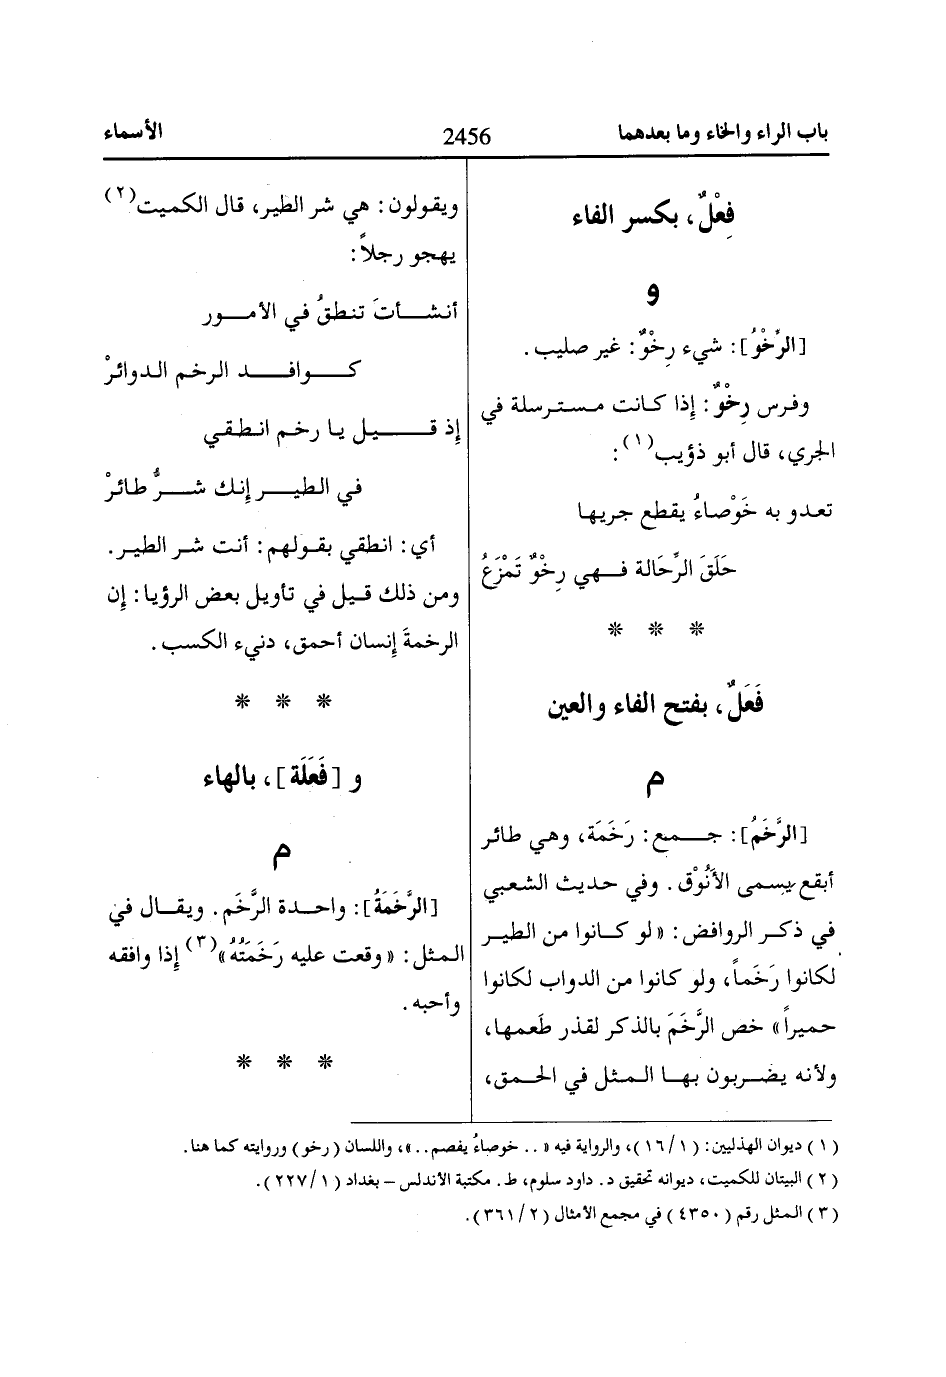 باب الراء والخاء وما بعدهما
2456
الأسماء
فِعْلٌ، بكسر الفاء
و
[الرِّخْوُ]: شيء رِخْوٌ: غير صليب.
وفرس رِخْوٌ: إذا كانت مسترسلة في
الجري، قال أبو ذؤيب(١):
تعدو به خَوْصاءُ يقطع جريها
حَلَقَ الرِّحالة فهي رِخْوٌ تَمْزَعُ
* * *
فَعَلٌ، بفتح الفاء والعين
م
[الرَّخَمُ]: جمع: رَخَمَة، وهي طائر
أبقع يسمى الأَنُوْق. وفي حديث الشعبي
في ذكر الروافض: «لو كانوا من الطير
لكانوا رَخَماً، ولو كانوا من الدواب لكانوا
حميراً» خص الرَّخَمَ بالذكر لقذر طَعمها،
ولأنه يضربون بها المثل في الحمق،
ويقولون: هي شر الطير، قال الكميت(٢)
يهجو رجلاً:
أنشأتَ تنطقُ في الأمور
كوافد الرخم الدوائرْ
إذ قيل يا رخم انطقي
في الطير إنك شرُّ طائرْ
أي: انطقي بقولهم: أنت شر الطير.
ومن ذلك قيل في تأويل بعض الرؤيا: إن
الرخمةَ إنسان أحمق، دنيء الكسب.
* * *
و [فَعَلَة]، بالهاء
م
[الرَّخَمَةُ]: واحدة الرَّخَم. ويقال في
المثل: «وقعت عليه رَخَمَتُهُ»(٣) إذا وافقه
وأحبه.
* * *
(١) ديوان الهذليين: (١/١٦)، والرواية فيه «.. خوصاءُ يفصم..»، واللسان (رخو) وروايته كما هنا.
(٢) البيتان للكميت، ديوانه تحقيق د. داود سلوم، ط. مكتبة الأندلس – بغداد (١/٢٢٧).
(٣) المثل رقم (٤٣٥٠) في مجمع الأمثال (٢/٣٦١).